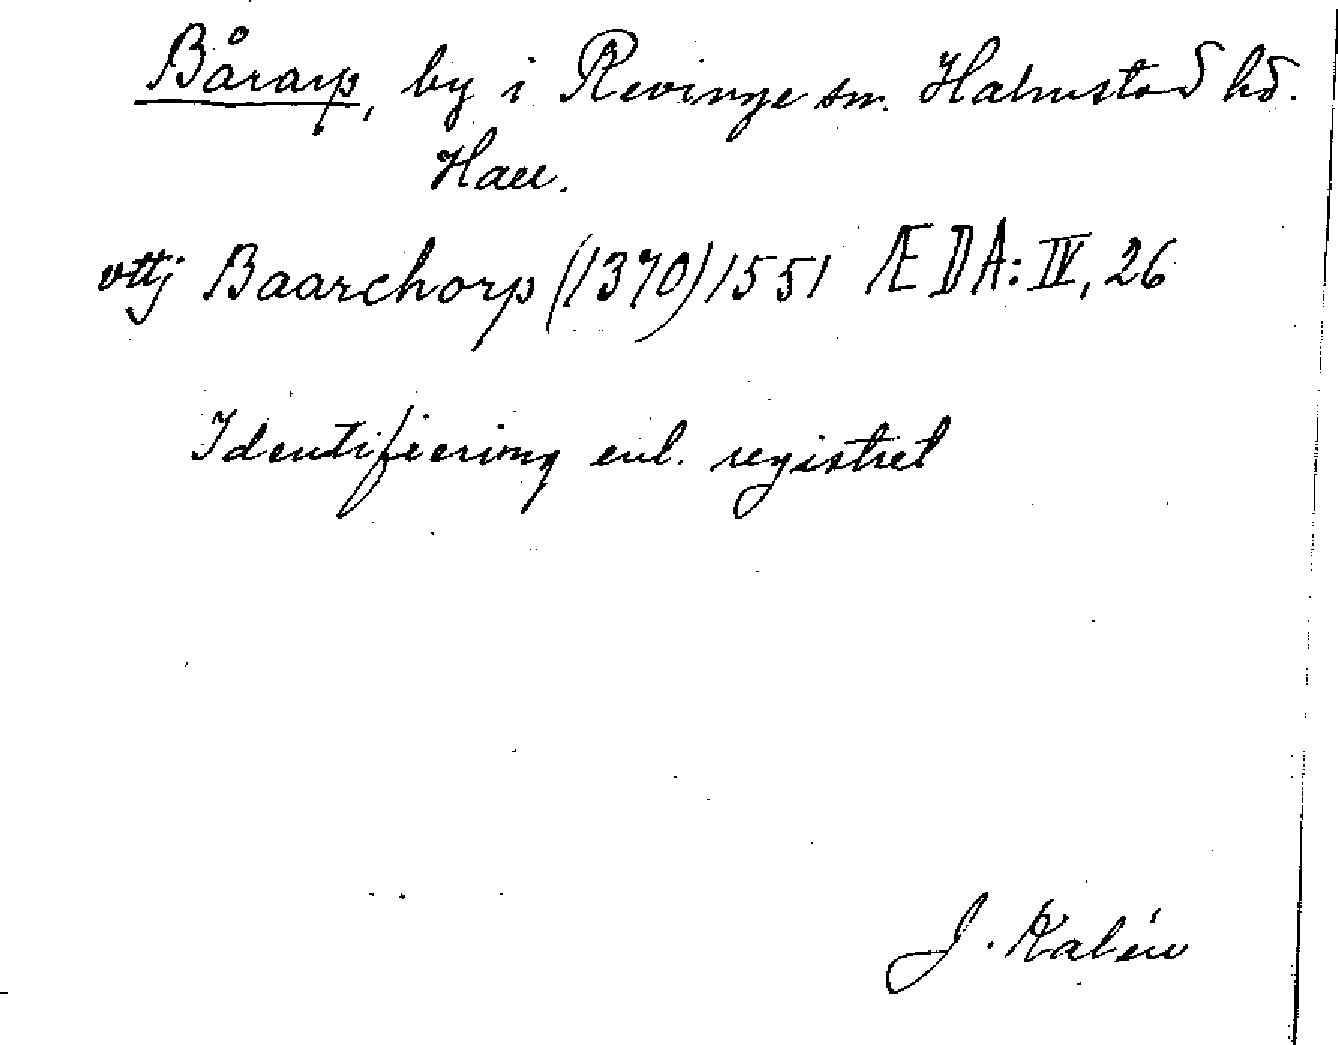 Bårarp, by i Revinge sn. Halmstad hd.
Hall.
vttj Baarthorp (1370) 1551 ÆDA: IV, 26
Identifiering enl. registret
J. Kalén